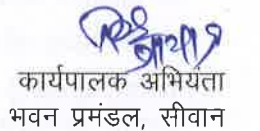 कार्यपालक अभियंता
भवन प्रमंडल, सीवान